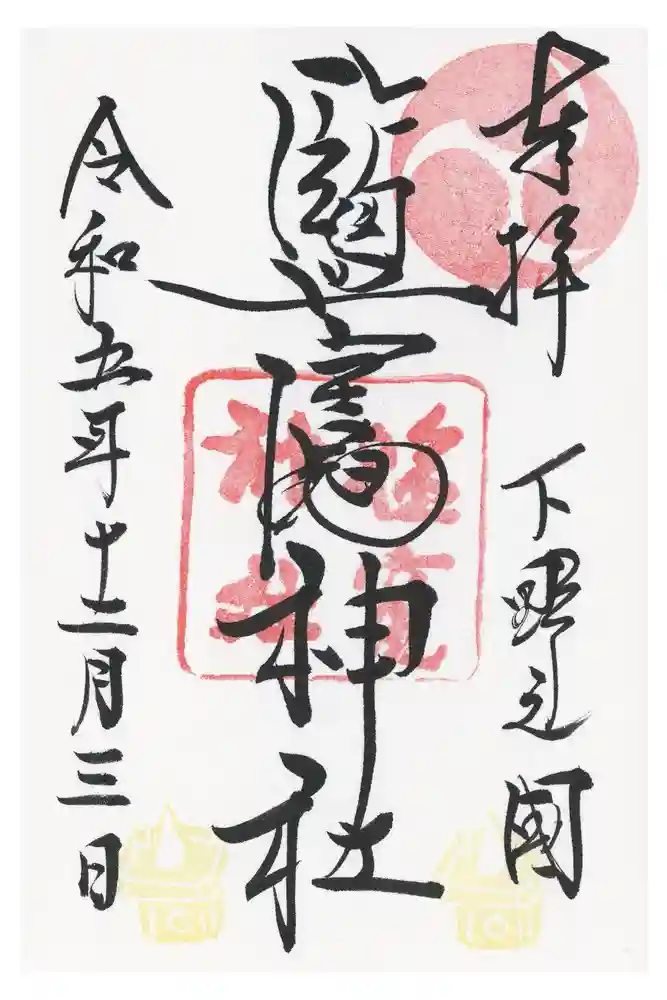 奉拝
下野之國
鹽竈神社
令和五年十二月三日